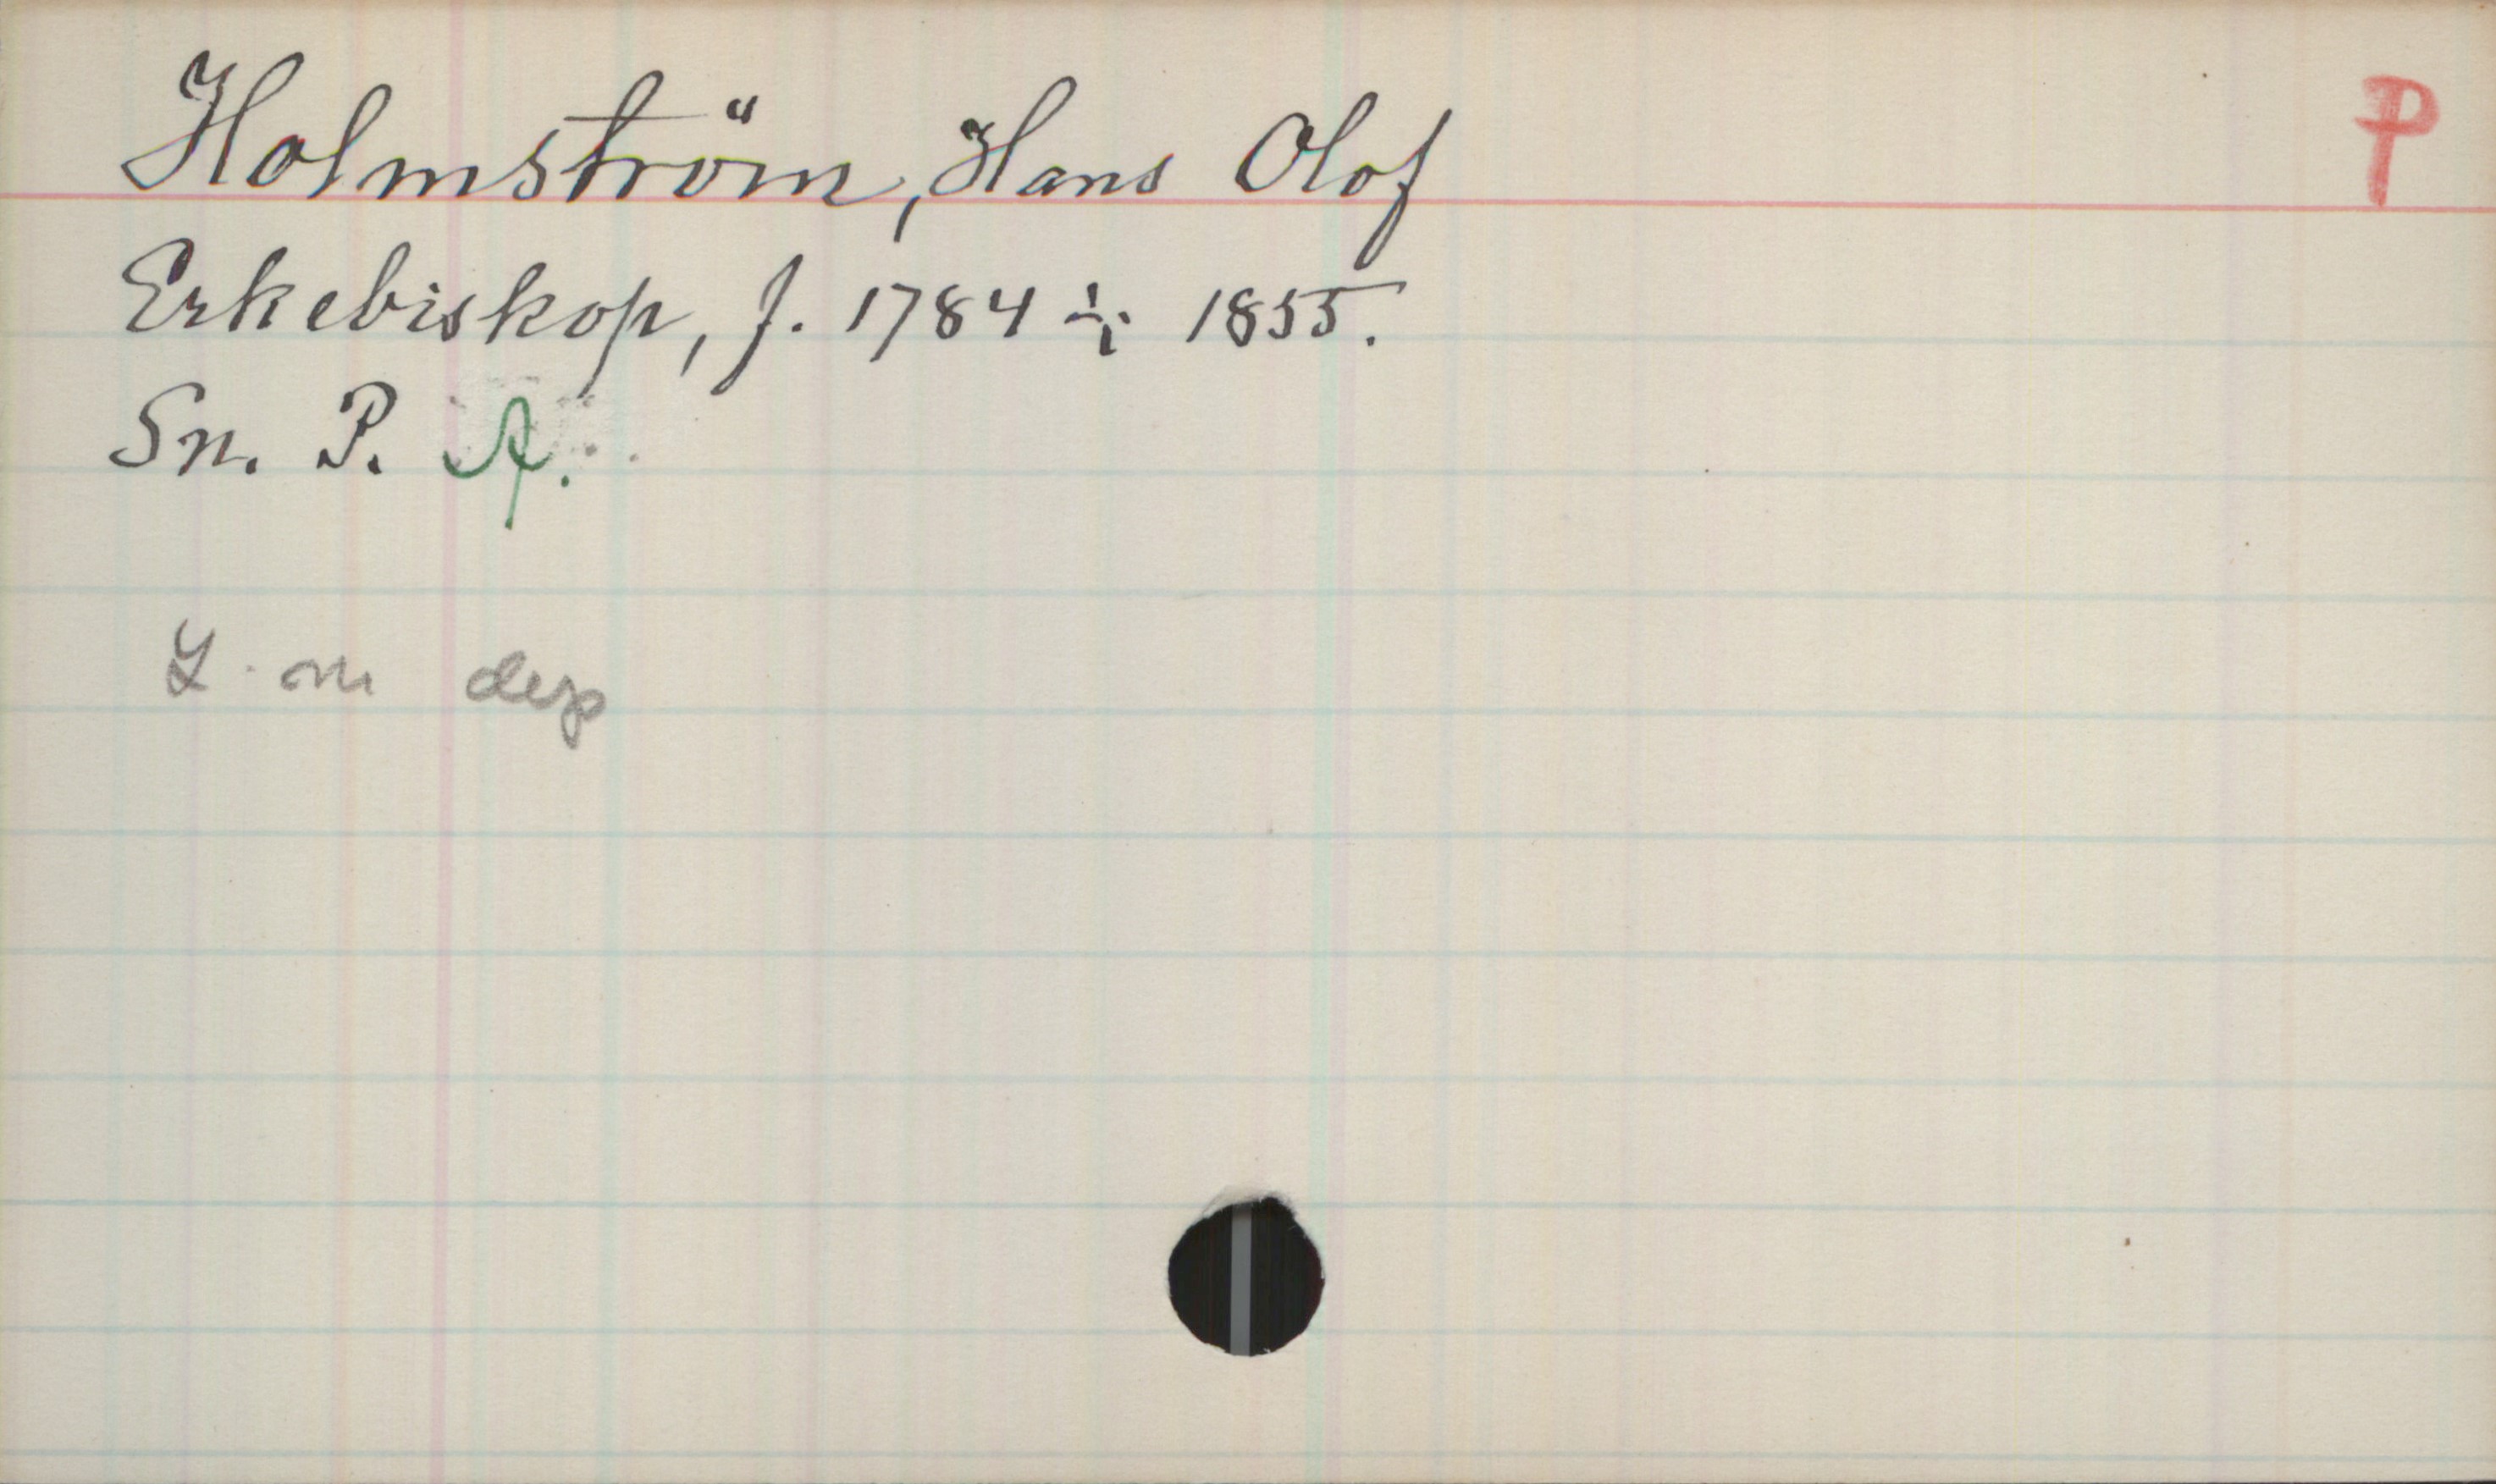 Holmström, Hans Olof P
Erkebiskop, f. 1784 ÷ 1855.
Sn. P. A.
dep